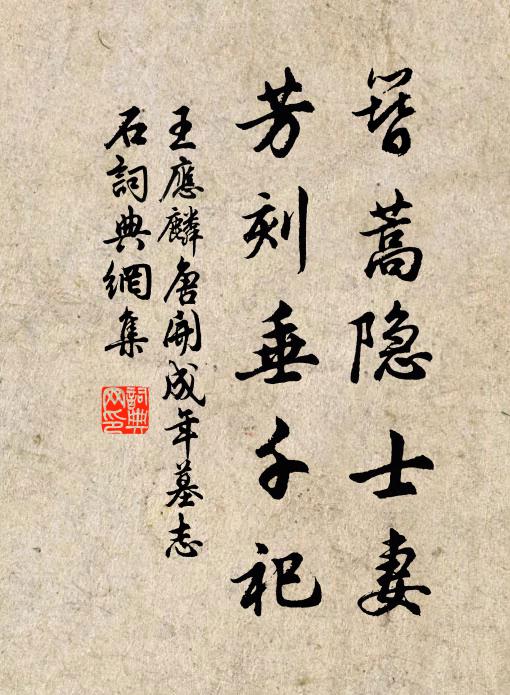 簪蒿隐士妻
芳刻垂千祀
王應麟唐開成年墓志
石詞典網集
詞典网印